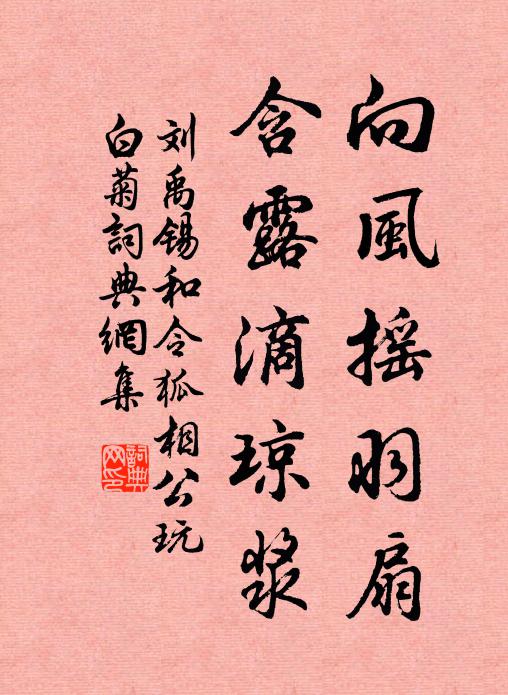 向風摇羽扇
含露滴琼漿
刘禹锡和令狐相公玩
白菊詞典網集
詞典
网印